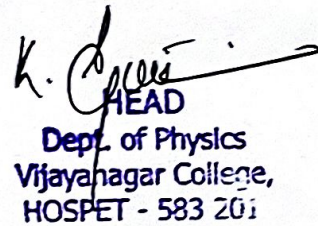 K.
HEAD
Dept. of Physics
Vijayanagar College,
HOSPET - 583 201